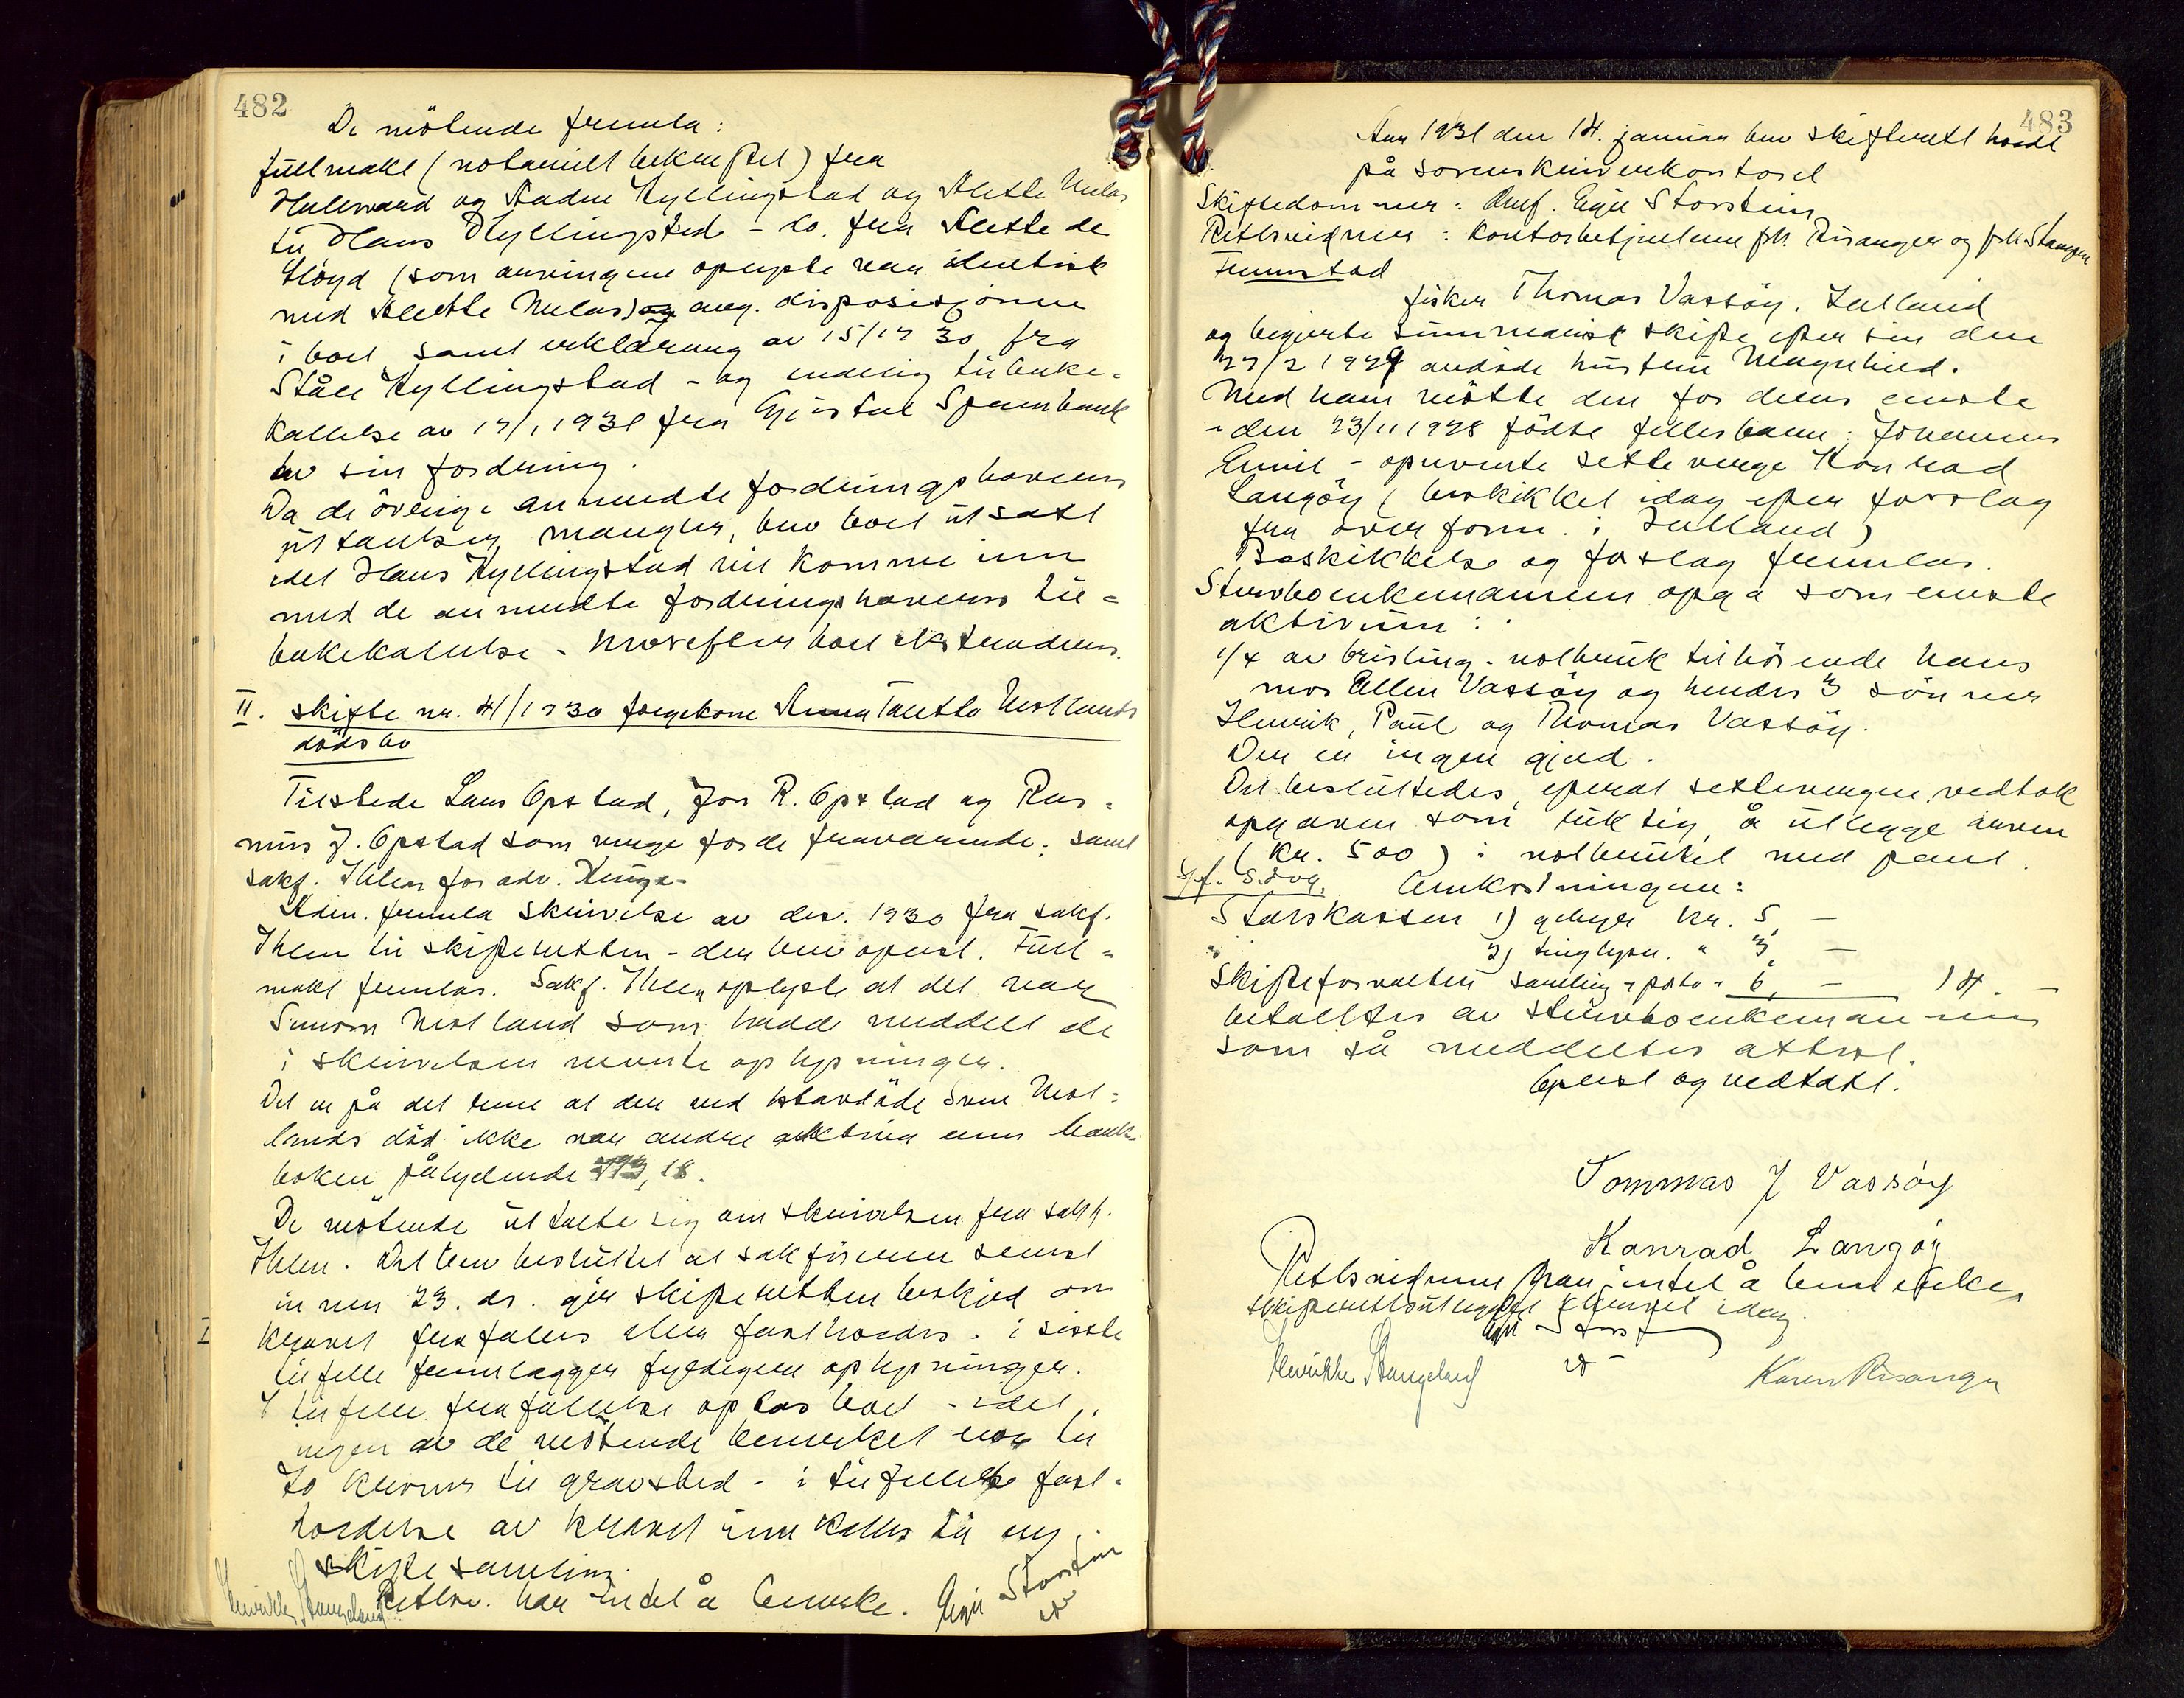 482
De møtende fremla:
fullmakt (notarielt bekreftet) fra
Hallvard og Hyllingstad og Alette
til Hans Hyllingstad - do. fra Alette de
Lloyd (som arvingene oplyste var identisk
med Alette ang. disposisjonen
i boet samt erklæring av 15/12 30 fra
Ståle Hyllingstad - og endelig tilbake-
kallelse av 17/1 1931 fra Gjesdal Sparebank
av sin fordring.
Da de øvrige anmeldte fordringshaveres
uttalelser mangler, blev boet utsatt
idet Hans Hyllingstad vil komme inn
med de anmeldte fordringshaveres til-
bakekallelse - hvorefter boet ekstraderes.
II. skifte nr. 41/1930 frøken Anna Talette Mellands
dødsbo
Tilstede Lars Opstad, Jon R. Opstad og Ras-
mus J. Opstad som verge for de fraværende; samt
sakf. Ihlen for adv.
Adm. fremla skrivelse av des. 1930 fra sakf.
Ihlen til skifteretten - den blev oplest. Full-
makt fremlas. Sakf. Ihlen oplyste at det var
som hadde meddelt de
i skrivelsen nevnte oplysninger.
Det er på det rene at der ved avdøde
lands død ikke var andre aktiva enn bank-
boken pålydende ,18.
De møtende uttalte sig om skrivelsen fra sakf.
Ihlen. Det blev besluttet at sakføreren senest
innen 23. ds. gir skifteretten beskjed om
kravet frafalles eller fastholdes - i siste
tilfelle fremlegges fyldigere oplysninger.
I tilfelle frafallelse opløs boet - idet
ingen av de møtende bemerket noe til
to kroner til gravsted - i tilfelle fast-
holdelse av kravet innkalles til ny
skiftesamling.
Retsv. har intet å bemerke. Egil Storstein
Henrikke Stangeland
483
Aar 1931 den 14. januar blev skifterett holdt
på sorenskriverkontoret
Skiftedommer: Dmf. Egil Storstein
Rettsvidner: Kontorbetjentene frk. Risanger og frk. Stangeland
Fremstod
fisker Thomas Vassøy, Jelland
og begjærte summarisk skifte efter sin den
27/2 1929 avdøde hustru Magnhild.
Med ham møtte den for deres eneste
- den 23/11 1928 fødte fellesbarn: Johannes
Emil - opnevnte setteverge Konrad
Langøy (beskikket idag efter forslag
fra overform. i Jelland)
Beskikkelse og forslag fremlas.
Sterboenkemannen opga som eneste
aktivum:
1/4 av brisling-notbruk tilhørende hans
mor Ellen Vassøy og hendes 3 sønner
Henrik, Paul og Thomas Vassøy.
Der er ingen gjeld.
Det besluttedes, efterat settevergen vedtok
opgaven som riktig, å utlegge arven
(kr. 500) i notbruket med pant.
Omkostningene:
Statskassen 1) gebyr kr. 5, -
2) tinglysn. " 3, -
Skifteforvalteren samling + porto " 6, - 14. -
betaltes av sterboenkemannen
som så meddeltes attest.
Oplest og vedtatt.
Tommas J Vassøy
Konrad Langøy
Rettsvidnene har intet å bemerke,
skifterettsutlegg utskrevet idag.
Egil Storstein
Henrikke Stangeland
Karen Risanger